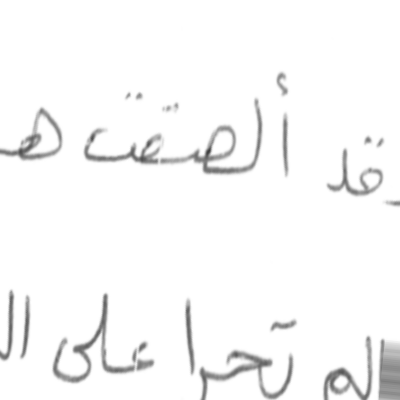 وقد ألصقت
لم تجرا على